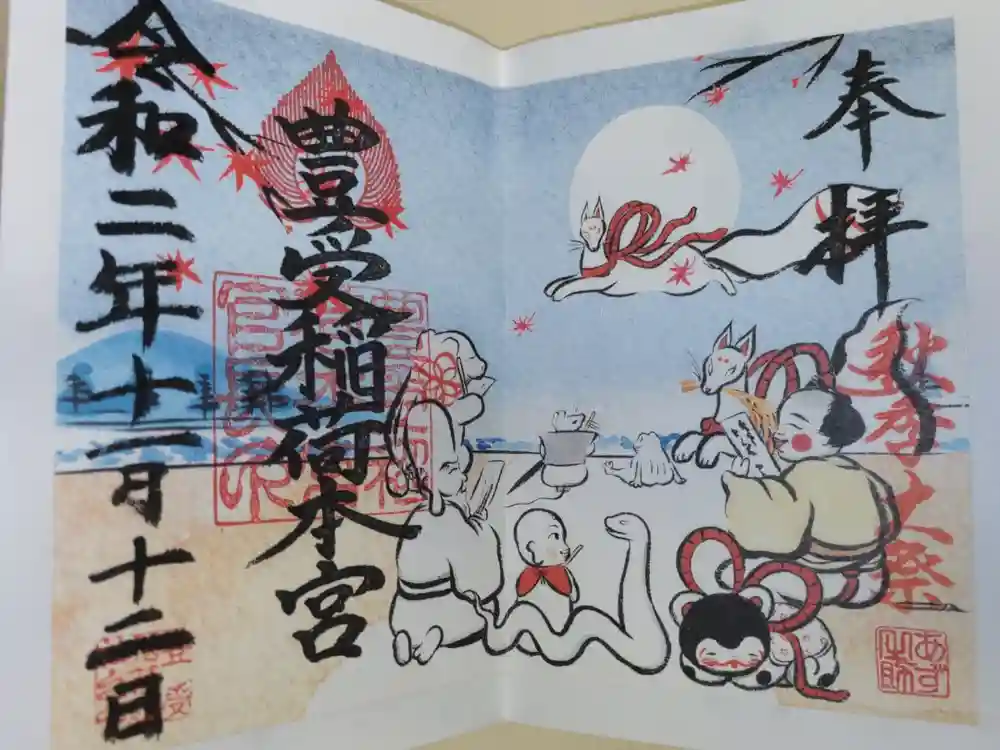 奉拝
秋季大祭
あず
之助
豊受稲荷本宮
令和二年十一月十二日